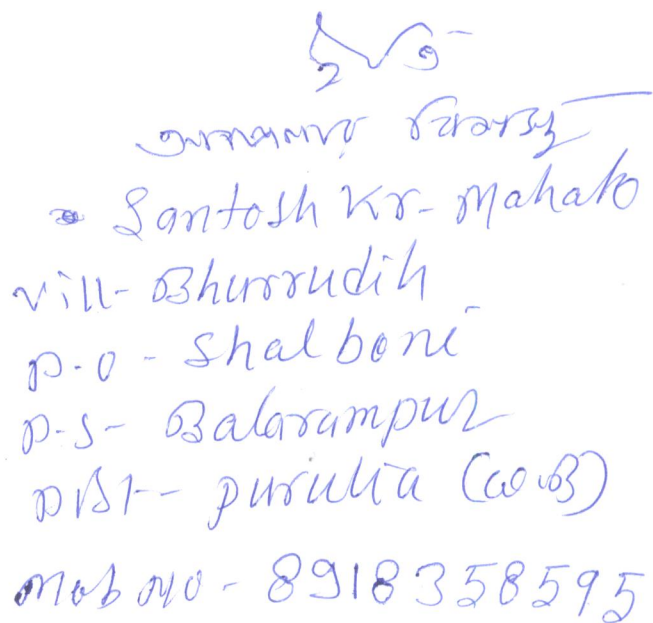 ইতি
Santosh Kr- Mahato
Vill- Bhurrudih
P.O - Shalboni
P.S- Balarampur
Dist- Purulia (W.B)
Mob No - 8918358595